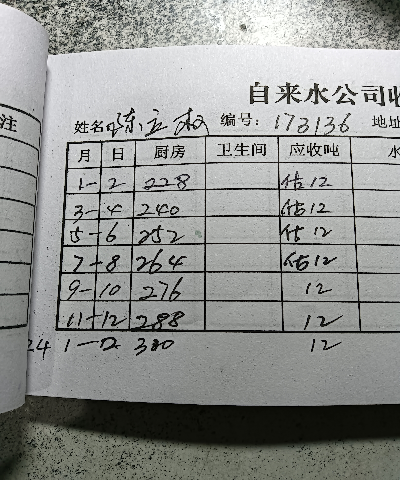 注
自来水公司收
姓名 陈立权 编号: 173136 地址
月 日 厨房 卫生间 应收吨 水
1-2 228 估12
3-4 240 估12
5-6 252 估12
7-8 264 估12
9-10 276 12
11-12 288 12
24 1-2 300 12